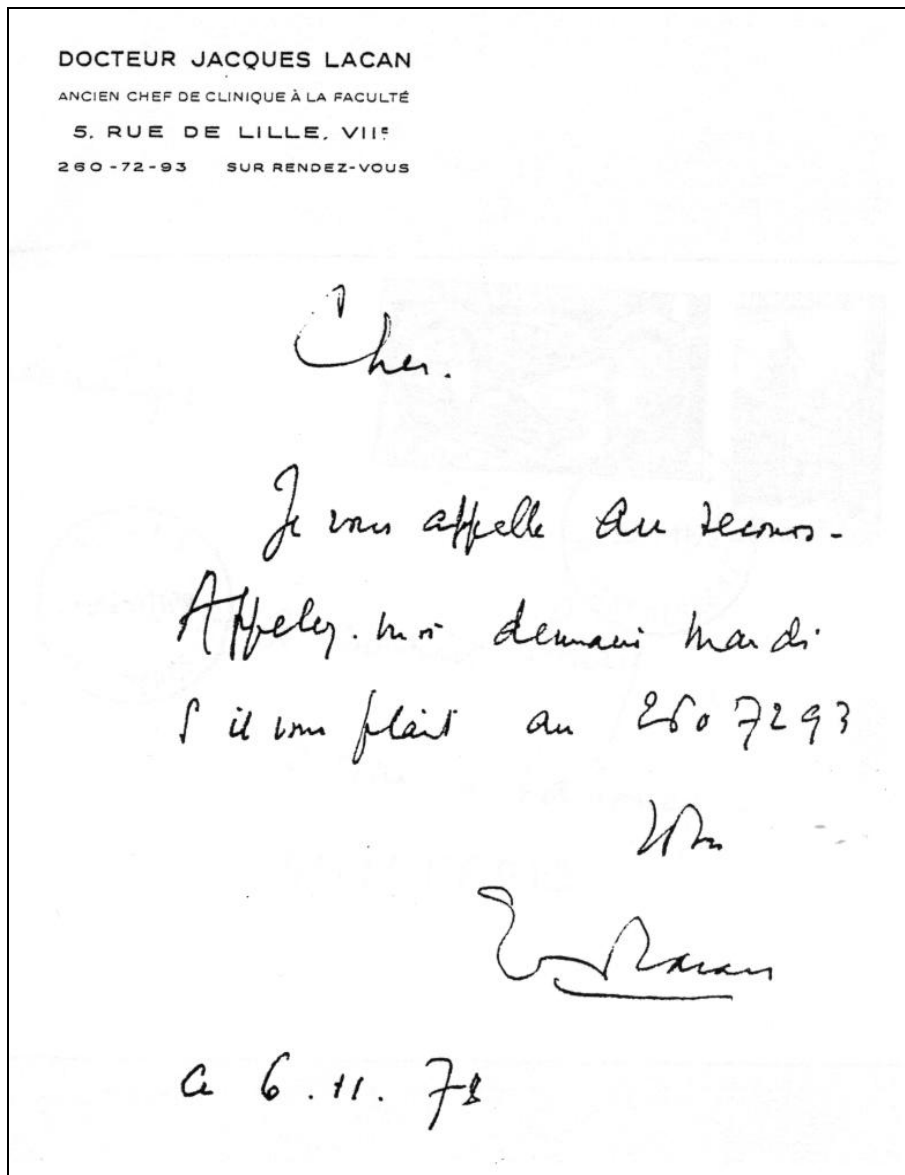 DOCTEUR JACQUES LACAN
ANCIEN CHEF DE CLINIQUE À LA FACULTÉ
5, RUE DE LILLE, VIIᵉ
260-72-93 SUR RENDEZ-VOUS
Cher.
Je vous appelle au secours-
Appelez-moi demain mardi
S il vous plaît au 260 7293
Lacan
ce 6.11.78